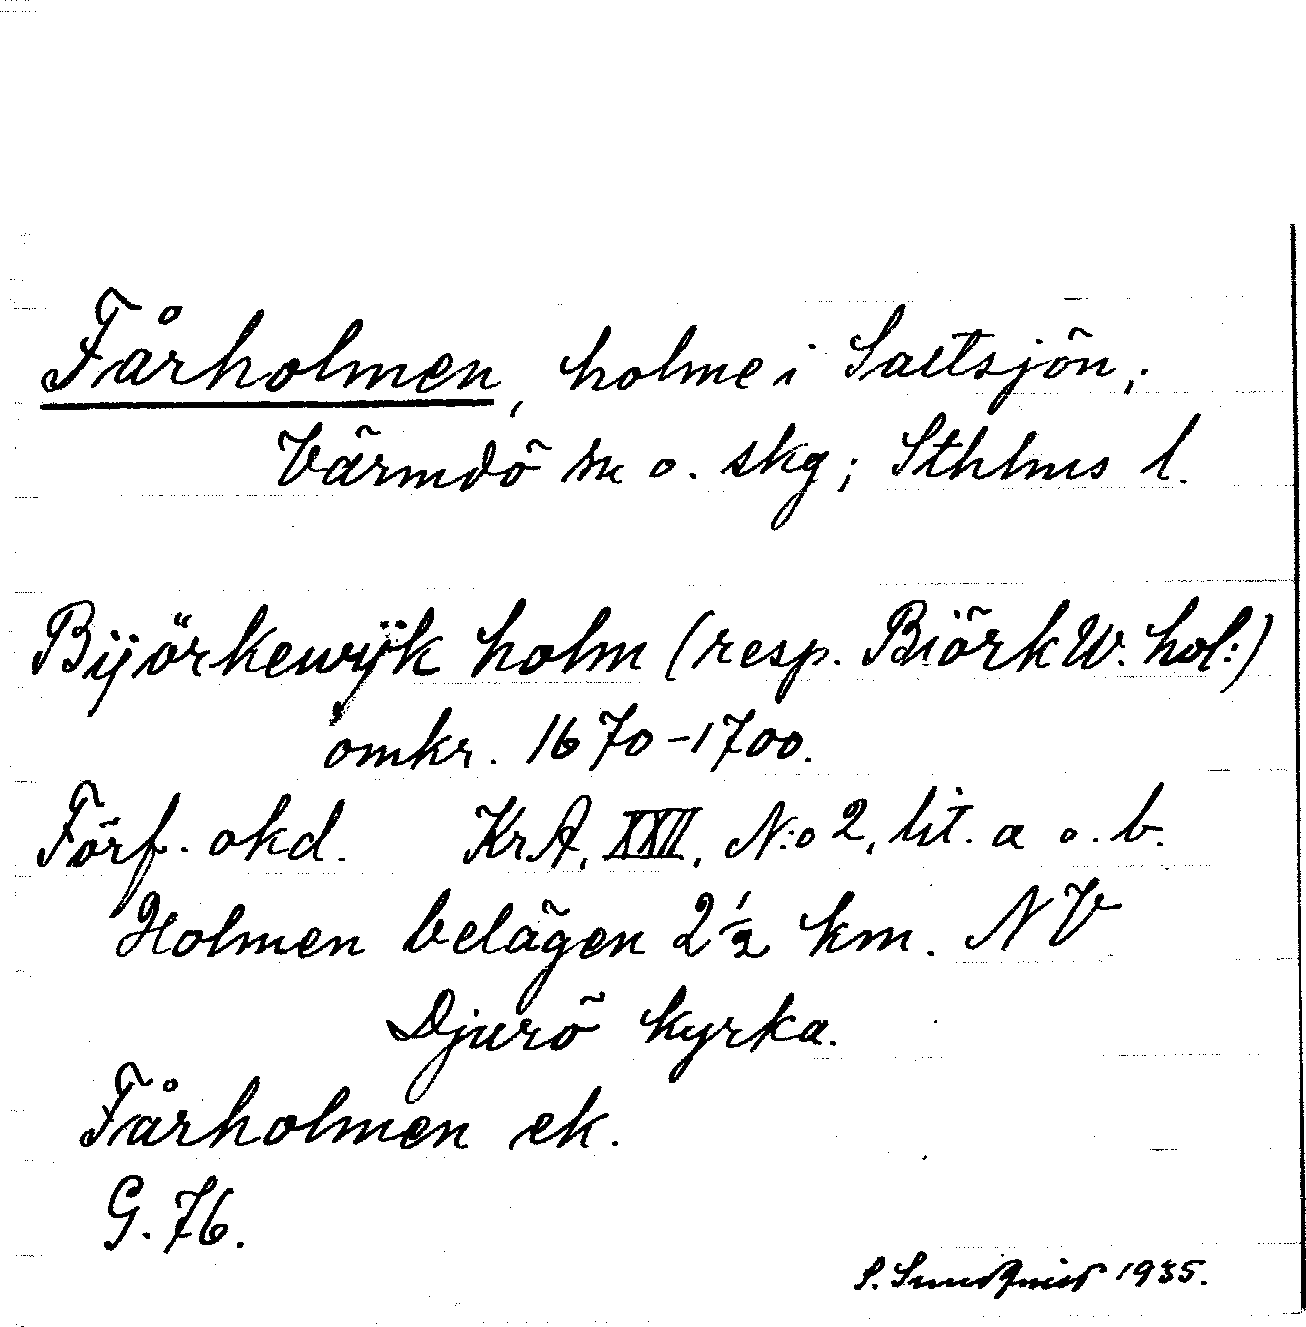 Fårholmen, holme i Saltsjön,
Värmdö sk o. skg; Sthlms l.
Bijörkewÿk holm (resp. Biörk W. hol:)
omkr. 1670-1700.
Förf. okd. KrA, XXII, N:o 2, lit. a o. b.
Holmen belägen 2 1/2 km. NV
Djurö kyrka.
Fårholmen ek.
G. 76.
S. Sundqvist 1935.